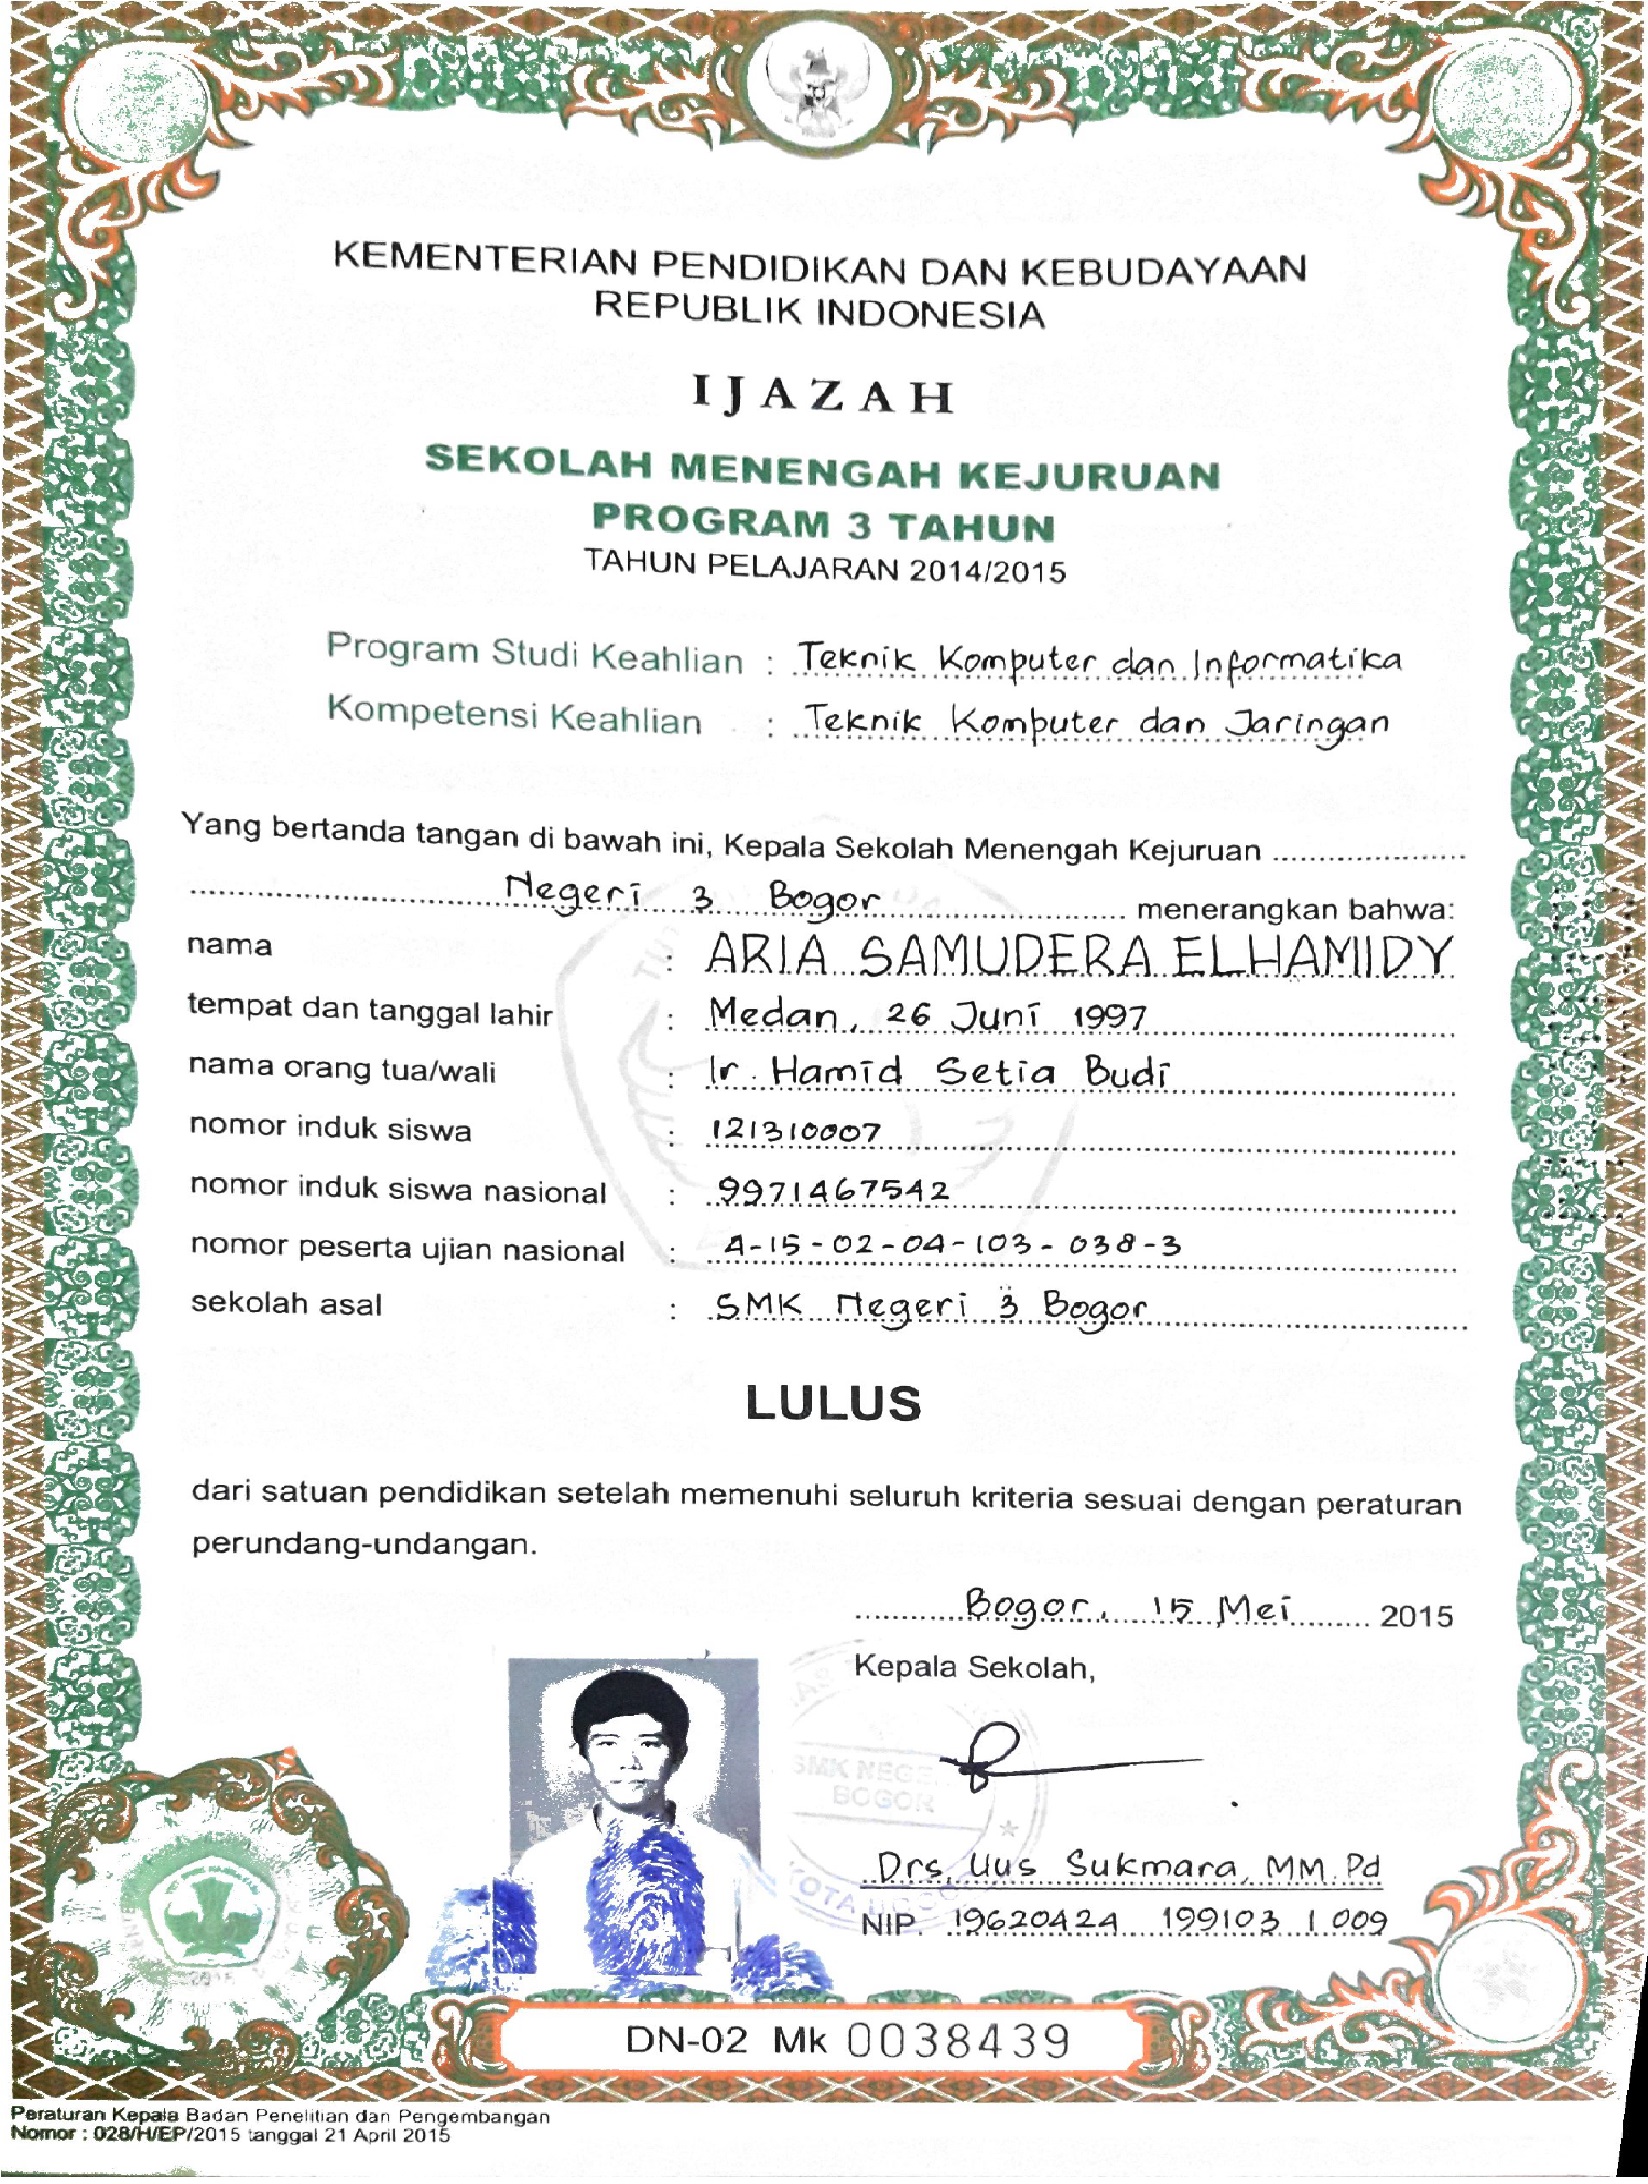 KEMENTERIAN PENDIDIKAN DAN KEBUDAYAAN
REPUBLIK INDONESIA
IJAZAH
SEKOLAH MENENGAH KEJURUAN
PROGRAM 3 TAHUN
TAHUN PELAJARAN 2014/2015
Program Studi Keahlian : Teknik Komputer dan Informatika
Kompetensi Keahlian : Teknik Komputer dan Jaringan
Yang bertanda tangan di bawah ini, Kepala Sekolah Menengah Kejuruan
Negeri 3 Bogor menerangkan bahwa:
nama : ARIA SAMUDERA ELHAMIDY
tempat dan tanggal lahir : Medan, 26 Juni 1997
nama orang tua/wali : Ir. Hamid Setia Budi
nomor induk siswa : 121310007
nomor induk siswa nasional : 9971467542
nomor peserta ujian nasional : 4-15-02-04-103-038-3
sekolah asal : SMK Negeri 3 Bogor
LULUS
dari satuan pendidikan setelah memenuhi seluruh kriteria sesuai dengan peraturan
perundang-undangan.
Bogor, 15 Mei 2015
Kepala Sekolah,
SMK NEGE
BOGOR
Drs. Uus Sukmara, MM.Pd
NIP. 19620424 199103 1 009
DN-02 Mk 0038439
Peraturan Kepala Badan Penelitian dan Pengembangan
Nomor : 028/H/EP/2015 tanggal 21 April 2015